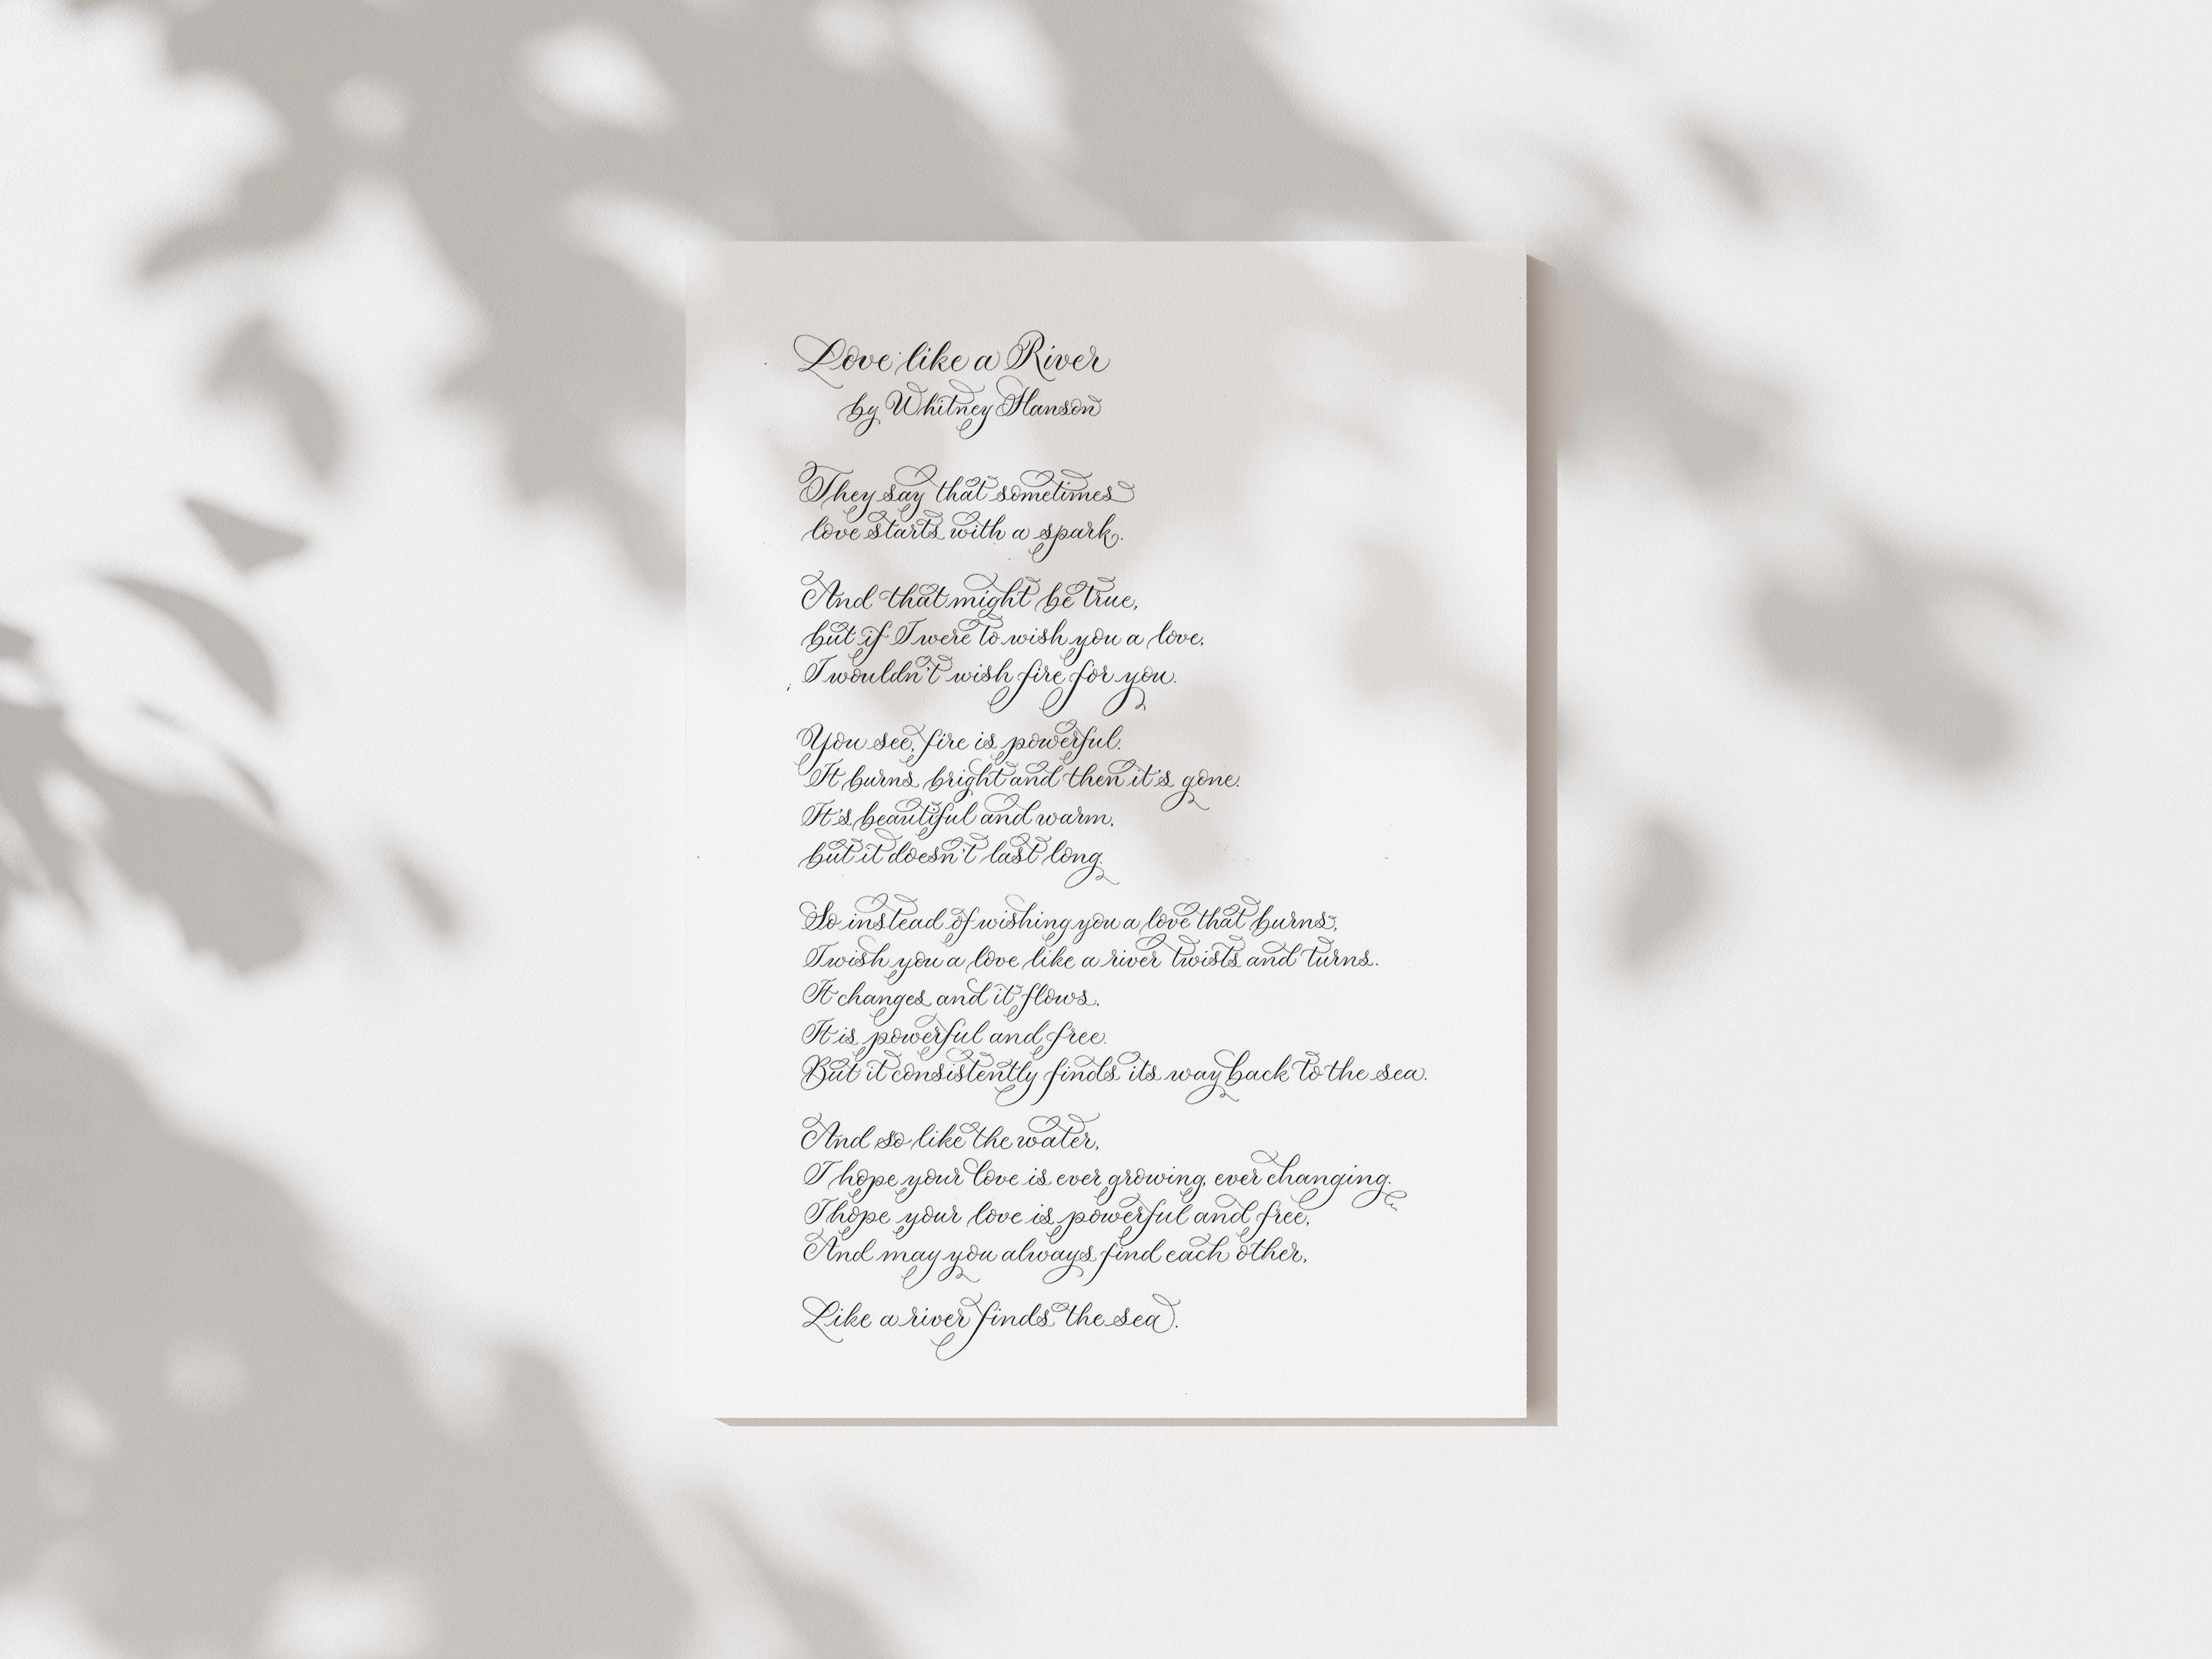 Love like a River
by Whitney Hanson
They say that sometimes
love starts with a spark.
And that might be true,
but if I were to wish you a love,
I wouldn't wish fire for you.
You see, fire is powerful.
It burns bright and then it's gone.
It's beautiful and warm,
but it doesn't last long.
So instead of wishing you a love that burns,
I wish you a love like a river twists and turns.
It changes and it flows.
It is powerful and free.
But it consistently finds its way back to the sea.
And so like the water,
I hope your love is ever growing, ever changing.
I hope your love is powerful and free,
And may you always find each other,
Like a river finds the sea.